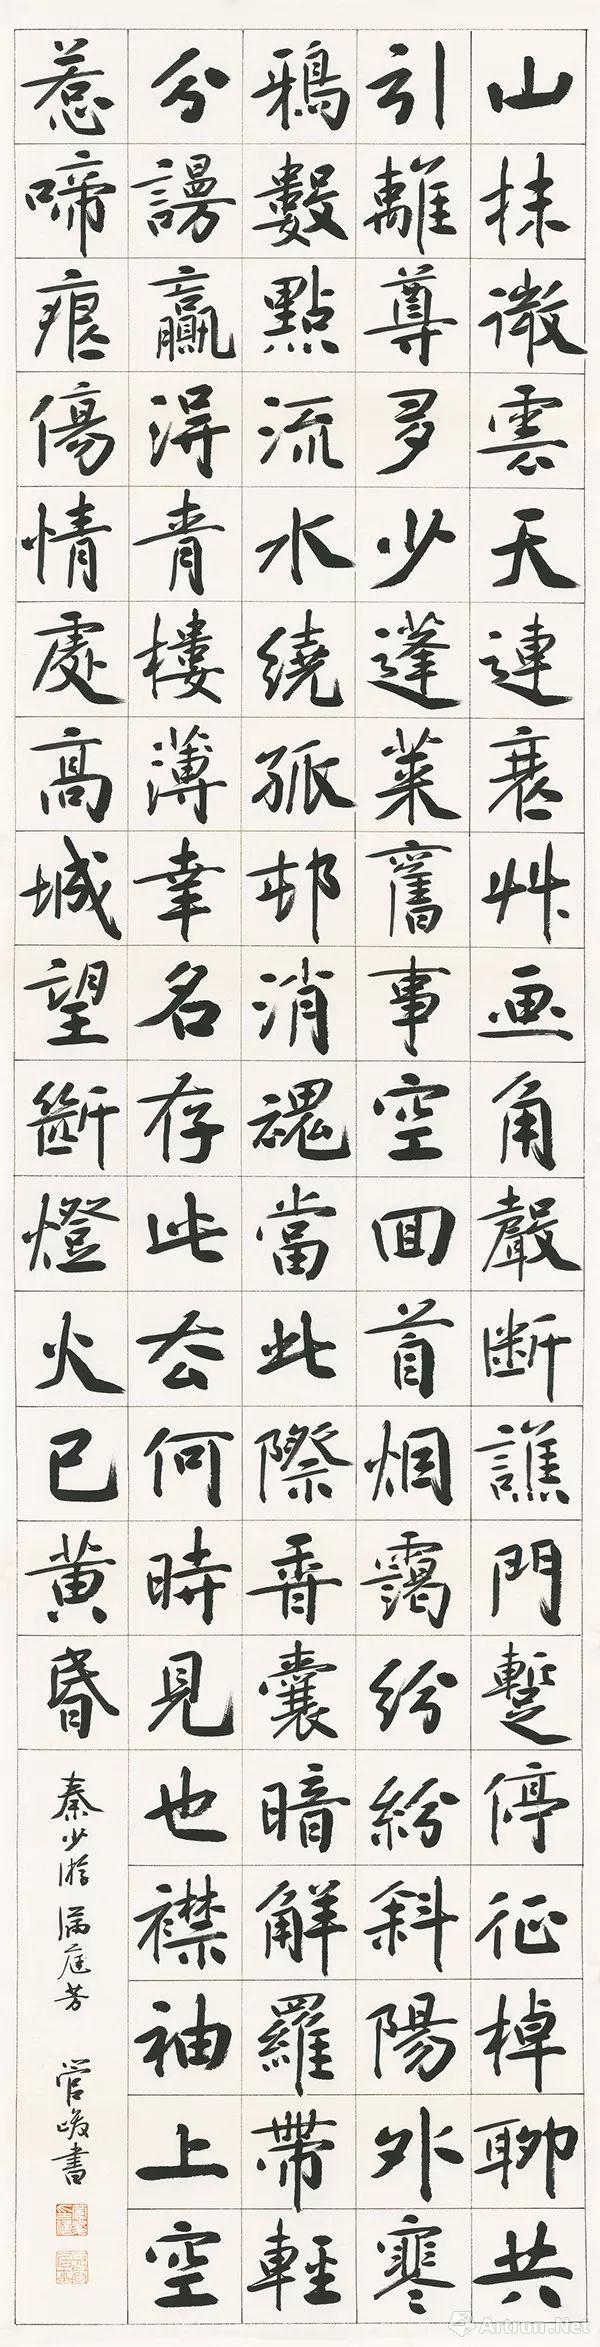 山抹微雲天連衰艸画角聲断譙門蹔停征棹聊共
引離尊多少蓬萊舊事空回首烟靄紛紛斜陽外寒
鴉數點流水繞孤邨消魂當此際香囊暗解羅帶輕
分謾贏得青樓薄幸名存此去何時見也襟袖上空
惹啼痕傷情處高城望斷燈火已黃昏
秦少游滿庭芳 管峻書
Artron.Net